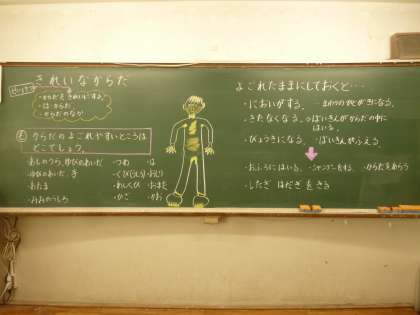 きれいなからだ
・からだをきれいにする。
・は・からだ
・からだのなか
からだのよごれやすいところは
どこでしょう。
・あしのうら、ゆびのあいだ
・ゆびのあいだ、手
・あたま
・みみのうしろ
・つめ ・は
・くび(うしろ)・おしり
・わし ・おまた
・かお
よごれたままにしておくと…
・においがする。
・きたなくなる。・ばいきんがからだの中に
はいる。
・びょうきになる。・ばいきんがふえる。
・おふろにはいる。・シャンプーをする。・からだをあらう
・したぎ はだぎ をきる